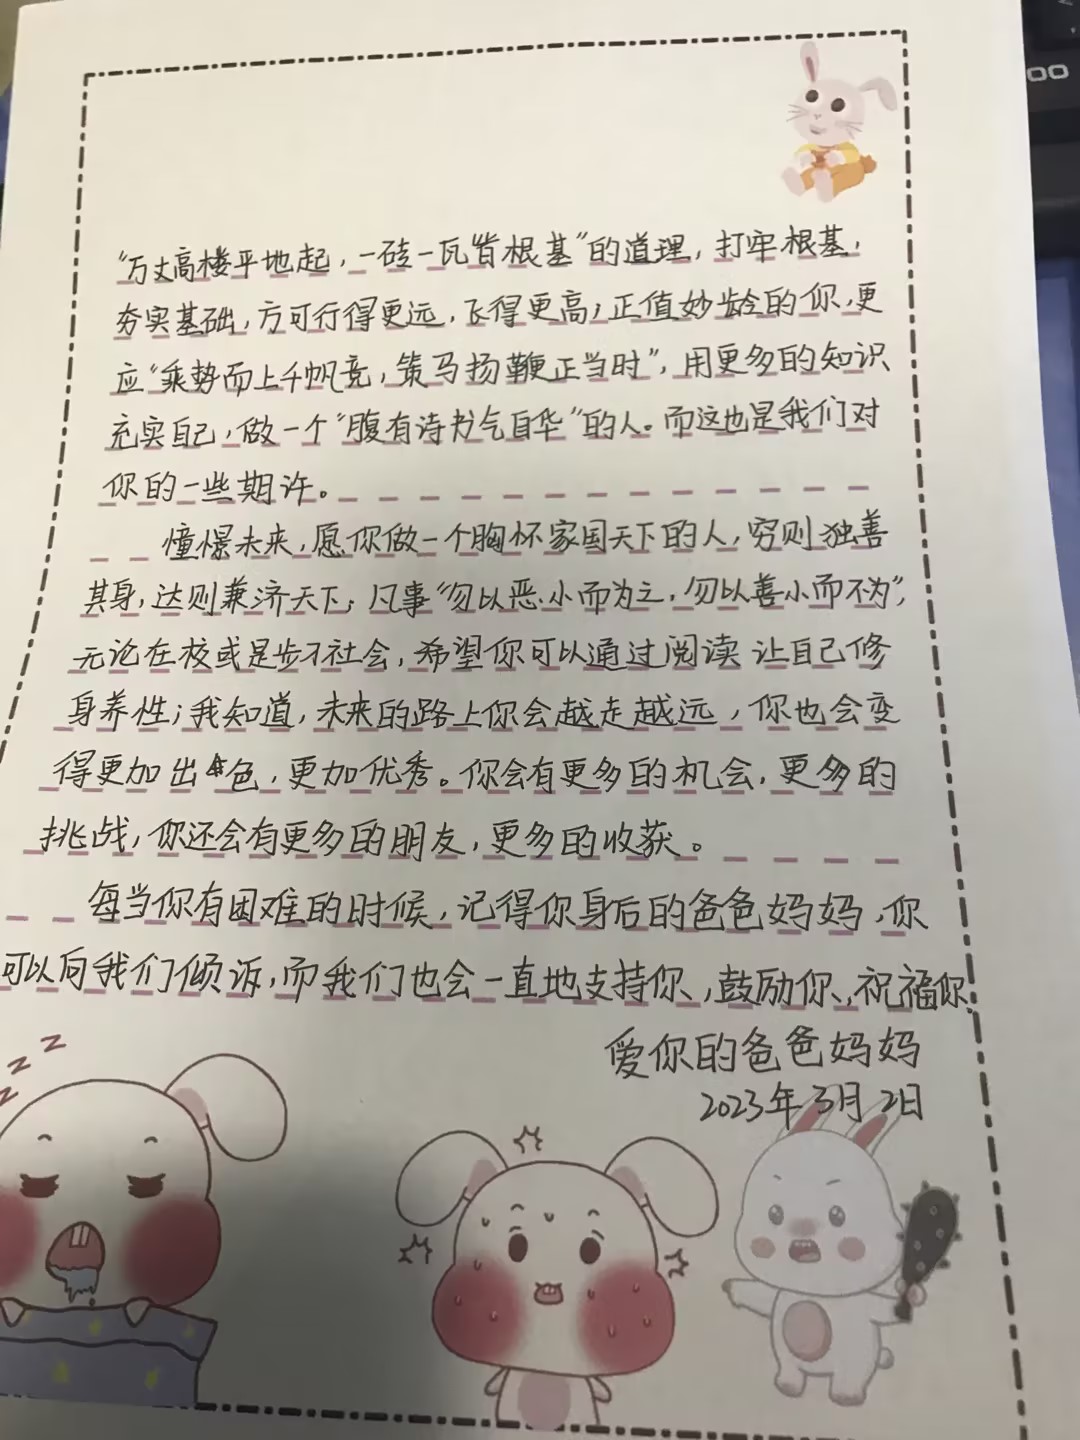 “万丈高楼平地起，一砖一瓦皆根基”的道理，打牢根基，
夯实基础，方可行得更远，飞得更高；正值妙龄的你，更
应“乘势而上千帆竞，策马扬鞭正当时”，用更多的知识
充实自己，做一个“腹有诗书气自华”的人。而这也是我们对
你的一些期许。
憧憬未来，愿你做一个胸怀家国天下的人，穷则独善
其身，达则兼济天下；凡事“勿以恶小而为之，勿以善小而不为”，
无论在校或是步入社会，希望你可以通过阅读让自己修
身养性；我知道，未来的路上你会越走越远，你也会变
得更加出色，更加优秀。你会有更多的机会，更多的
挑战，你还会有更多的朋友，更多的收获。
每当你有困难的时候，记得你身后的爸爸妈妈，你
可以向我们倾诉，而我们也会一直地支持你，鼓励你，祝福你。
爱你的爸爸妈妈
2023年3月2日
z z z
00